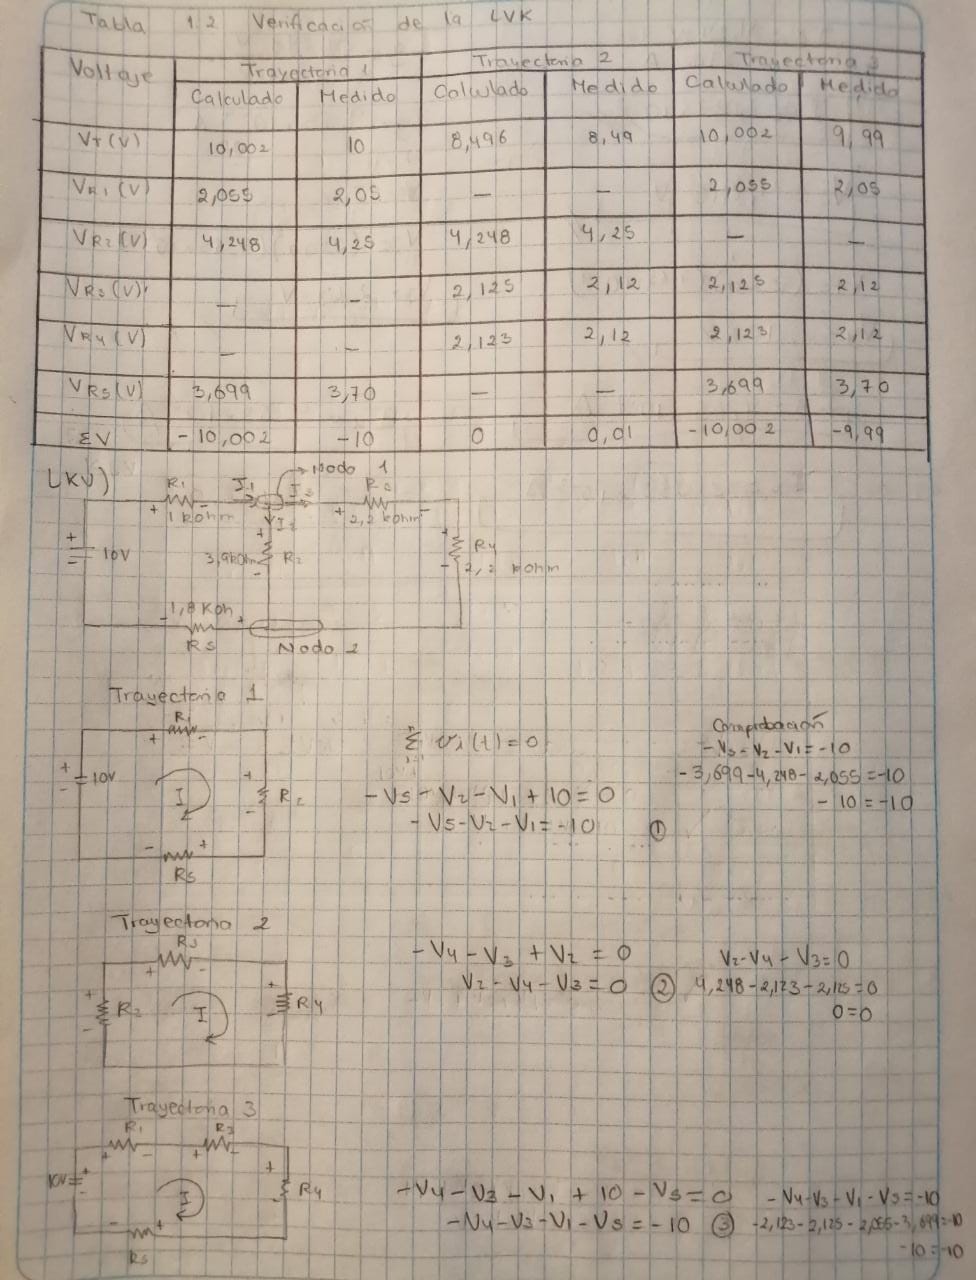 Tabla 1.2 Verificación de la LVK
Voltaje Trayectoria 1 Trayectoria 2 Trayectoria 3
Calculado Medido Calculado Medido Calculado Medido
VT (V) 10,002 10 8,496 8,49 10,002 9,99
VR1 (V) 2,055 2,05 — — 2,055 2,05
VR2 (V) 4,248 4,25 4,248 4,25 — —
VR3 (V) — — 2,125 2,12 2,125 2,12
VR4 (V) — — 2,123 2,12 2,123 2,12
VR5 (V) 3,699 3,70 — — 3,699 3,70
ΣV -10,002 -10 0 0,01 -10,002 -9,99
LKV) Nodo 1
R1 I1
+ 1 kohm - + 2,2 kohm -
+ 10V 3,9kohm R2 R4
2,2 kohm
- 1,8 Koh +
R5 Nodo 2
Trayectoria 1
R1
+ -
+ 10V - I + R2 -
- +
R5
Σ vi(t) = 0
-V5 - V2 - V1 + 10 = 0
-V5 - V2 - V1 = -10 ①
Comprobación
-V5 - V2 - V1 = -10
-3,699-4,248-2,055=-10
-10 = -10
Trayectoria 2
R3
+ -
+ R2 - I + R4
-V4 - V3 + V2 = 0
V2 - V4 - V3 = 0 ②
V2-V4-V3=0
4,248-2,123-2,125=0
0=0
Trayectoria 3
R1 R3
+ - + -
10V + - I + R4
- +
R5
-V4 - V3 - V1 + 10 - V5 = 0
-V4-V3-V1-V5 = -10 ③
-V4-V3-V1-V5=-10
-2,123-2,125-2,055-3,699=-10
-10=-10